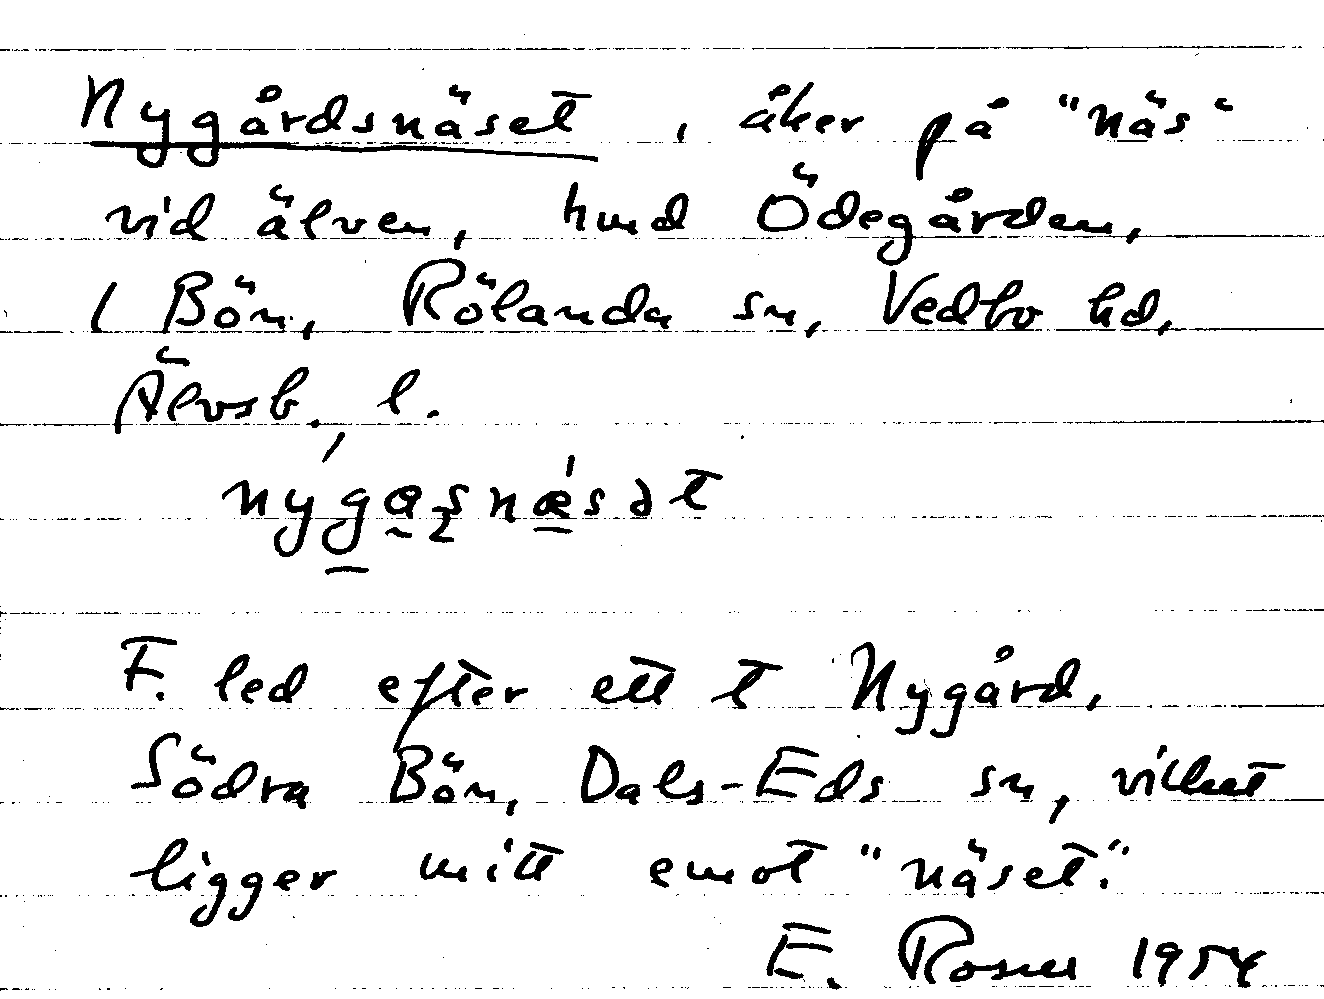 Nygårdsnäset, åker på "näs"
vid älven, hmd Ödegården,
i Bön, Rölanda sn, Vedbo hd,
Älvsb. l.
F. led efter ett t Nygård,
Södra Bön, Dals-Eds sn, vilket
ligger mitt emot "näset".
E. 1954